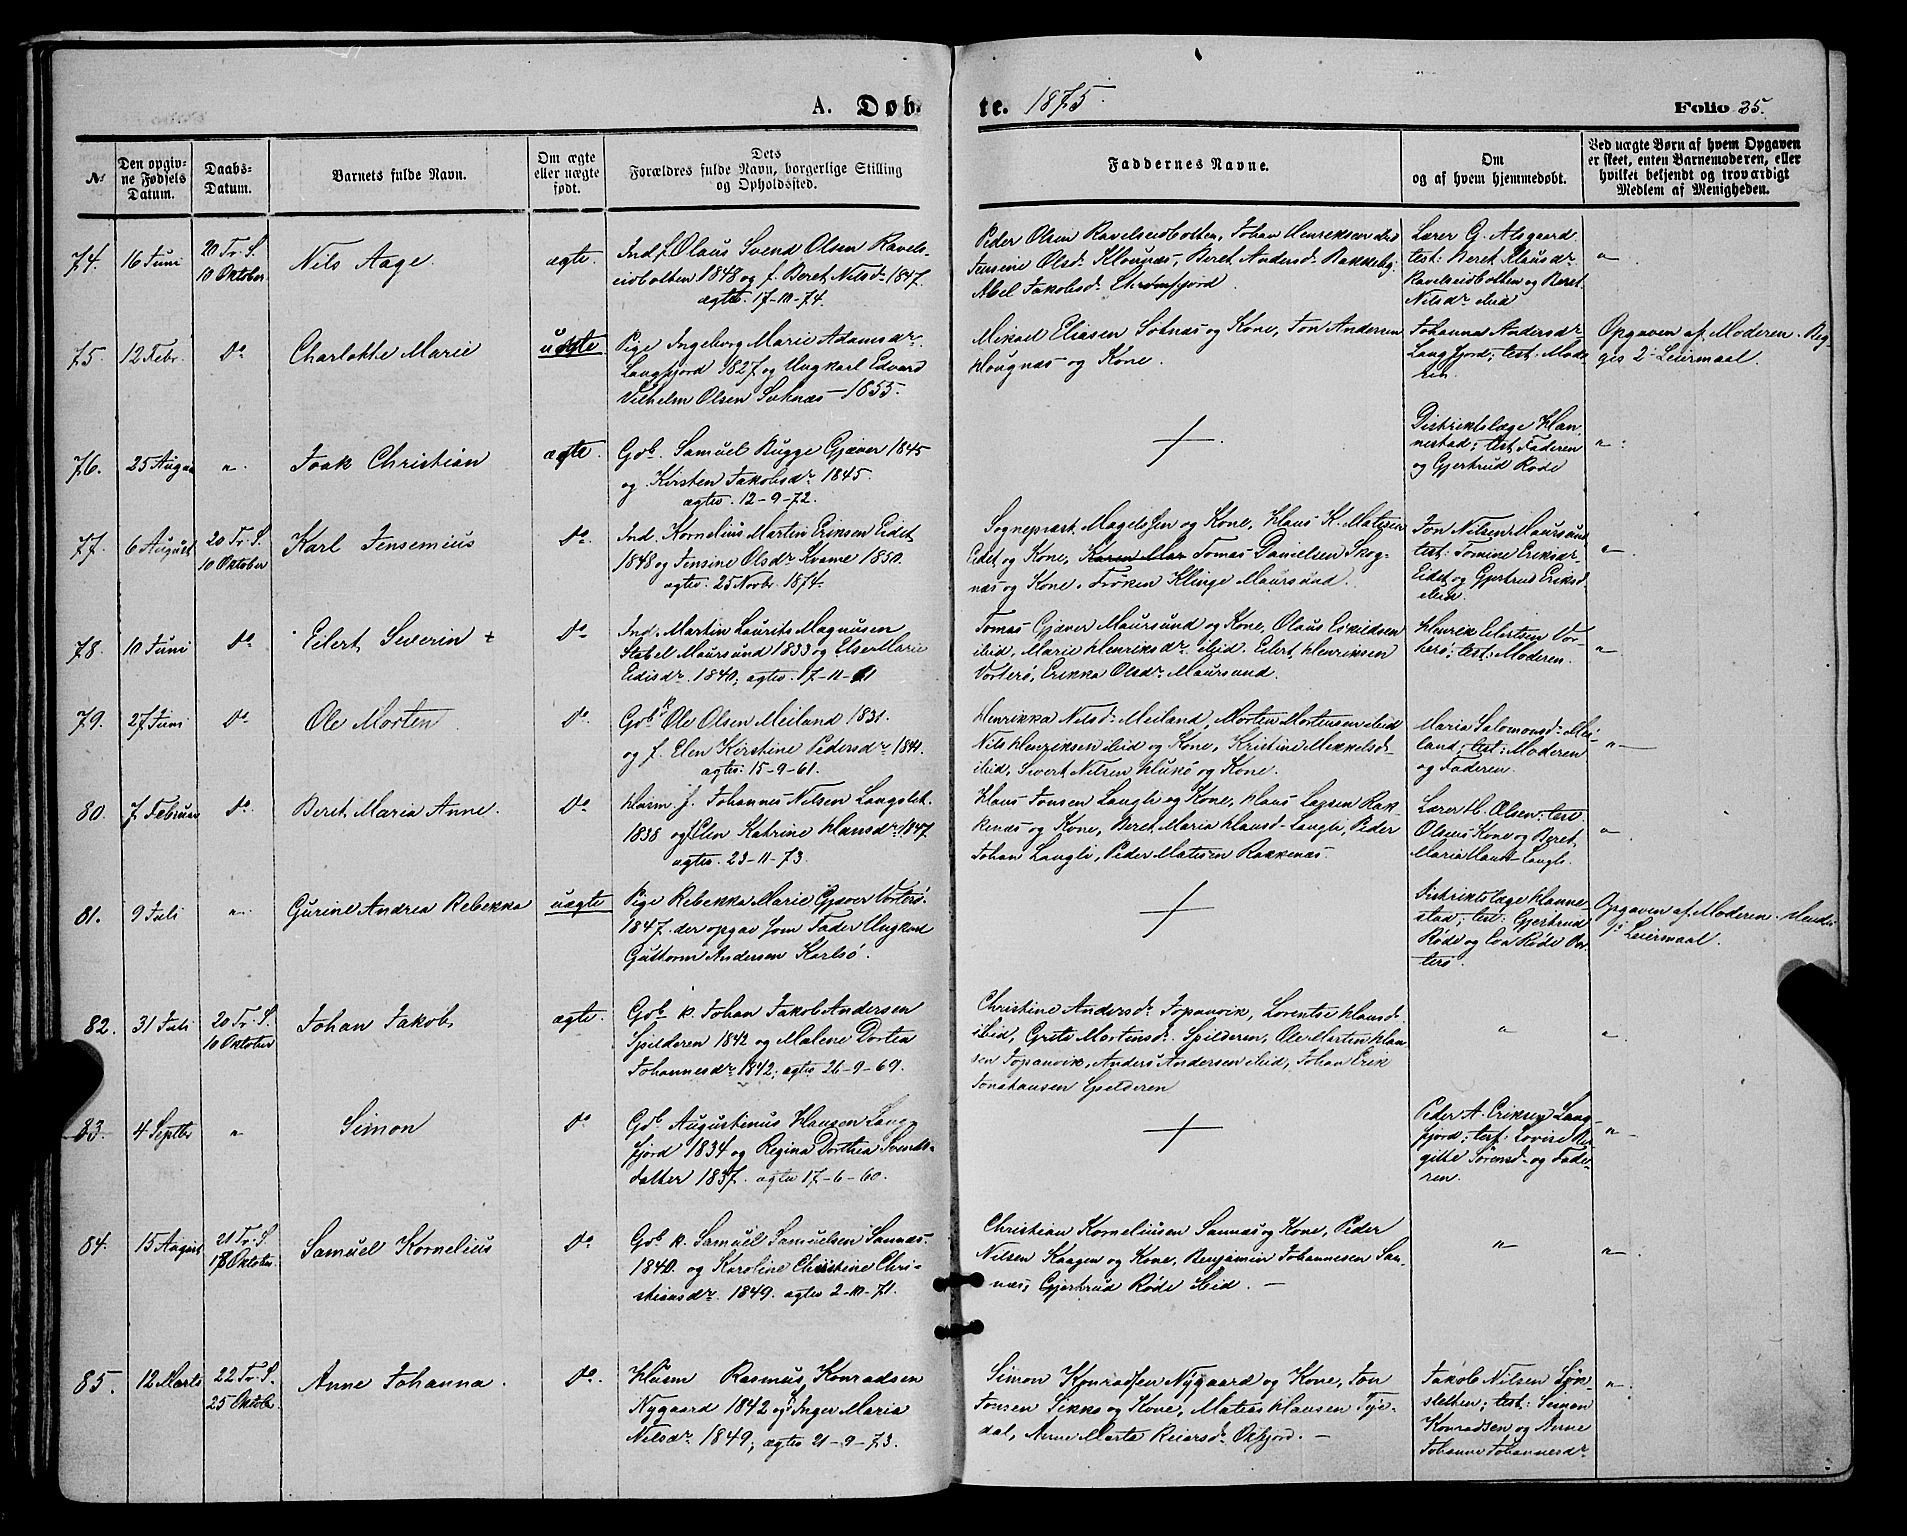 A. Døb-
te. 1875.
Folio 35.
№
Den opgiv-
ne Fødsels
Datum.
Daabs-
Datum.
Barnets fulde Navn.
Om ægte
eller uægte
født.
Dets
Forældres fulde Navn, borgerlige Stilling
og Opholdssted.
Faddernes Navne.
Om
og af hvem hjemmedøbt.
Ved uægte Børn af hvem Opgaven
er skeet, enten Barnemoderen, eller
hvilket bekjendt og troværdigt
Medlem af Menigheden.
74.
16 Juni
20 Tr. S.
10 Oktober
Nils Aage
ægte.
Ind. f. Olaus Svend Olsen Ravels-
eidbotten 1848 og f. Beret Nilsdr 1847.
ægtev. 17-10-74.
Peder Olsen Ravelseidbotten, Johan Henriksen ibid
Jensine Olsdr Klounæs, Beret Andersdr Bakkeby
Abel Jakobsdr Strømfjord.
Lærer G. Alsgaard
test: Beret Klausdr
Ravelseidbotten og Beret
Nilsdr ibid
"
75.
12 Febr.
Do
Charlotte Marie
uægte
Pige Ingeborg Marie Adamsdr
Langfjord 1827 og Ungkarl Edvard
Vilhelm Olsen Sotnæs - 1855.
Mikael Eliasen Sotnæs og Kone, Jon Andersen
Hougnæs og Kone.
Johanna Andersdr
Langfjord; test: Mode-
ren
Opgaven af Moderen. Beg-
ges 2' Leiermaal.
76.
25 August
"
Isak Christian
ægte.
Gdb. Samuel Bugge Gjæver 1845
og Kirsten Jakobsdr 1845.
ægtev. 12-9-72.
Distriktslæge Han-
nestad; test Faderen
og Gjertrud Røde
"
77.
6 August
20 Tr. S.
10 Oktober
Karl Jensemius
Do
Ind. Kornelius Martin Eriksen Eidet
1848 og Jensine Olsdr Kvame 1850.
ægtev. 25 Novbr. 1874.
Sognepræst Magelssen og Kone, Klaus K. Matisen
Eidet og Kone, Karen Mar Tomas Danielsen Skog-
næs og Kone, Frøken Klinge Maursund.
Jon Nilsen Maursund
test: Tomine Eriksdr
Eidet og Gjertrud Eriksd.
ibid.
"
78.
10 Juni
Do
Eilert Severin +
Do
Ind. Martin Laurits Magnusen
Stabel Maursund 1833 og Elser Marie
Edisdr 1840; ægtev. 17-11-61
Tomas Gjæver Maursund og Kone, Olaus Eskildsen
ibid, Marie Henriksdr ibid. Eilert Henriksen
Vorterø, Erikka Olsdr Maursund.
Henrik Eilertsen Vor-
terø; test: Moderen.
"
79.
27 Juni
Do
Ole Morten
Do
Gdb k Ole Olsen Meiland 1831.
og f. Elen Kirstine Pedersdr 1841.
ægtev: 15-9-61.
Henrikka Nilsd Meiland, Morten Mortensen ibid
Nils Henriksen ibid og Kone, Kristine Mikkelsd
ibid, Sivert Nilsen Hukø og Kone.
Maria Salomonsd Mei-
land; test: Moderen
og Faderen.
"
80.
7 Februar
Do.
Beret Maria Anne.
Do
Husm. f. Johannes Nilsen Langslet.
1838 og f. Elen Katrine Hansdr 1847
ægtev. 23-11-73.
Klaus Jonsen Langli og Kone, Klaus Larsen Rak-
kenæs og Kone, Beret Maria Hansd Langli, Peder
Johan Langli, Peder Matisen Rakkenæs.
Lærer H. Olsen; test.
Olsens Kone og Beret
Maria Hansd Langli.
"
81.
9 Juli
"
Gurine Andrea Rebekka
uægte
Pige Rebekka Marie Gjæver Vorterø.
1847. der opgav som Fader Ungkarl
Guthorm Andersen Karlsø.
Distriktslæge Hanne-
stad; test: Gjertrud
Røde og Eva Røde Vor-
terø.
Opgaven af Moderen. Hendes
1' Leiermaal.
82.
31 Juli
20 Tr. S.
10 Oktober
Johan Jakob
ægte.
Gdb k. Johan Jakob Andersen
Spilderen 1842 og Malene Dortea
Johannesdr 1842; ægtev 26-9-69.
Christine Andersd Jopanvik, Lorentse Hansd
ibid, Grete Mortensd. Spilderen, Ole Martin Han-
sen Jopanvik, Anders Andersen ibid, Johan Erik
Jonshansen Spilderen
"
"
83.
4 Septbr
"
Simon
Do
Gdb. Augustinus Hansen Lang-
fjord 1834 og Regina Dorthea Svends-
datter 1837. ægtev 17-6-60.
Peder A. Eriksen Lang-
fjord; test: Lovise Bir-
gitte Sørensd og Fade-
ren.
"
84.
15 August
21 Tr. S
18 Oktober.
Samuel Kornelius
Do
Gdb k. Samuel Samuelsen Sannæs-
1840. og Karoline Christine Chri-
stiansdr 1849. ægtev 2-10-71.
Christian Korneliusen Sannæs og Kone, Peder
Nilsen Kaagen og Kone, Benjamin Johannesen San-
næs, Gjertrud Røde ibid. -
"
"
85.
12 Marts
22 Tr. S.
25 Oktober.
Anne Johanna.
Do.
Husm Rasmus Konradsen
Nygaard 1842 og f. Inger Maria
Nilsdr 1849; ægtev 21-9-73.
Simon Konradsen Nygaard og Kone, Jon
Jonsen Sikka og Kone, Matias Hansen Tye-
dal, Anne Marta Reiersd Oxfjord. -
Jakob Nilsen Søk-
sletten; test: Simon
Konradsen og Anne
Johanne Johannesdr
"